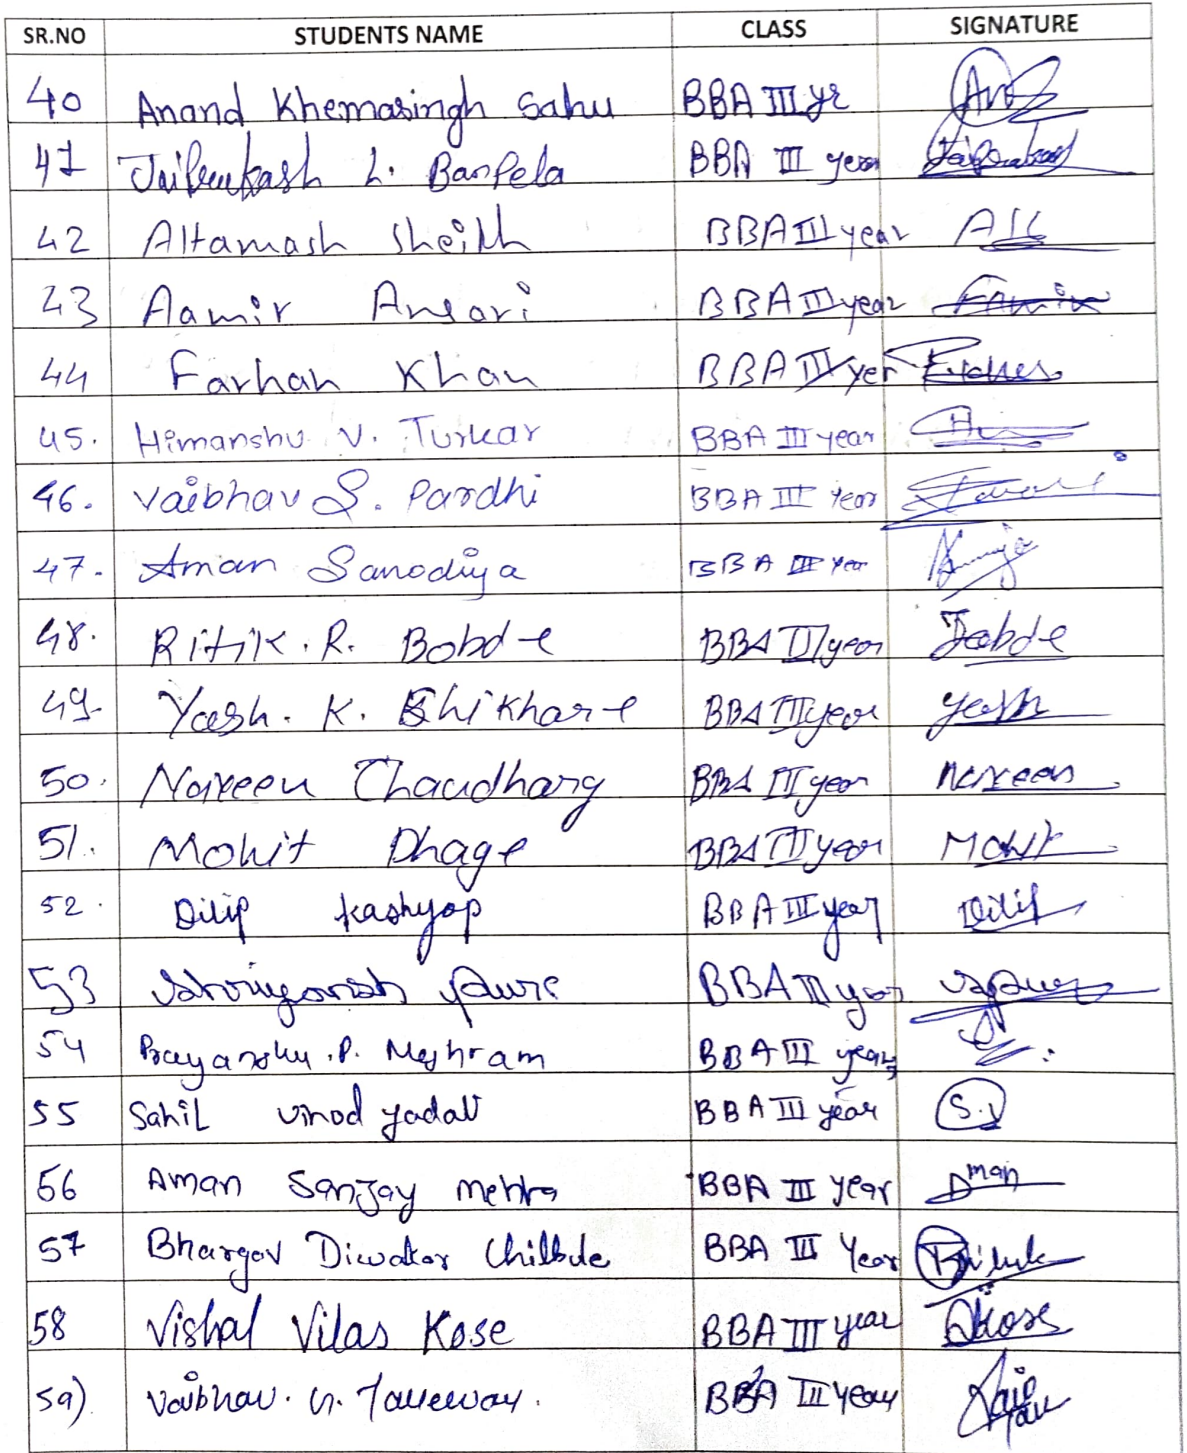 SR.NO STUDENTS NAME CLASS SIGNATURE
40 Anand Khemasingh Sahu BBA III yr
41 Jaiprakash L. Banpela BBA III year
42 Altamash Sheikh BBA III year
43 Aamir Ansari BBA III year
44 Farhan Khan BBA III yer
45. Himanshu V. Turkar BBA III year
46. Vaibhav S. Pardhi BBA III Year
47. Aman Sanodiya BBA III Year
48. Ritik. R. Bobde BBA III year Bobde
49. Yash. K. Shikhare BBA III year Yash
50. Naveen Chaudhary BBA III year Naveen
51. Mohit Dhage BBA III year Mohit
52. Dilip Kashyap BBA III year Dilip
53 BBA III year
54 Prayanshu. P. Meshram BBA III year
55 Sahil Vinod yadav BBA III year S.y
56 Aman Sanjay Mehra BBA III year Aman
57 Bhargav Diwakar Chilbule BBA III Year
58 Vishal Vilas Kose BBA III year
59) Vaibhav. BBA III Year